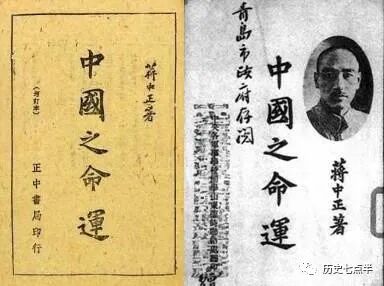 蔣中正著
中國之命運
(增訂本)
正中書局印行
青島市政府存閱
中國之命運
蔣中正著
历史七点半